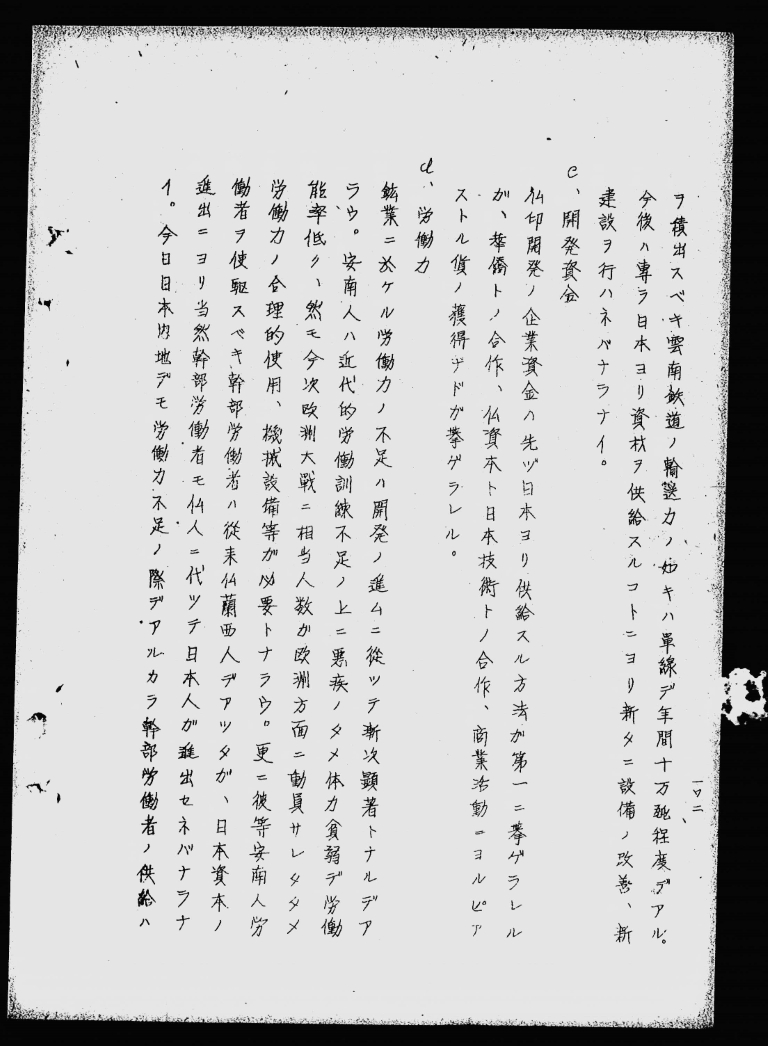 ヲ積出スベキ雲南鉄道ノ輸送力ノ如キハ単線デ年間十万瓲程度デアル。
今後ハ専ラ日本ヨリ資材ヲ供給スルコトニヨリ新タニ設備ノ改善、新
建設ヲ行ハネバナラナイ。
c、開発資金
仏印開発ノ企業資金ハ先ヅ日本ヨリ供給スル方法ガ第一ニ挙ゲラレル
ガ、華僑トノ合作、仏資本ト日本技術トノ合作、商業活動ニヨルピア
ストル貨ノ獲得ナドガ挙ゲラレル。
d、労働力
鉱業ニ於ケル労働力ノ不足ハ開発ノ進ムニ従ツテ漸次顕著トナルデア
ラウ。安南人ハ近代的労働訓練不足ノ上ニ悪疾ノタメ体力貧弱デ労働
能率低ク、然モ今次欧洲大戦ニ相当人数ガ欧洲方面ニ動員サレタタメ
労働力ノ合理的使用、機械設備等ガ必要トナラウ。更ニ彼等安南人労
働者ヲ使駆スベキ幹部労働者ハ従来仏蘭西人デアツタガ、日本資本ノ
進出ニヨリ当然幹部労働者モ仏人ニ代ツテ日本人ガ進出セネバナラナ
イ。今日日本内地デモ労働力不足ノ際デアルカラ幹部労働者ノ供給ハ
一〇二